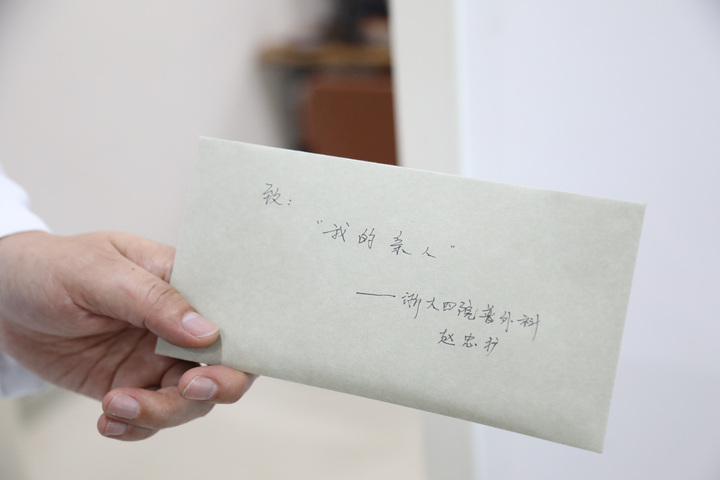 致：
“我的亲人”
——浙大四院普外科
赵忠扩